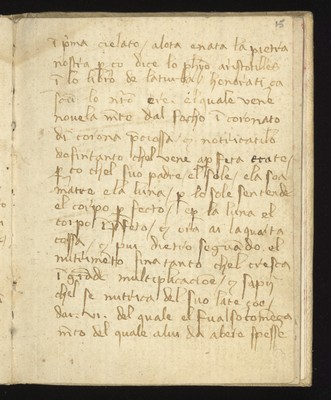 15
i pma celato / alota enata la pietra
nostra p co dice lo phyo aristotiles
i lo libro de laturba / honorati
lo nro ere elquale vene
novela mte dal focho i coronato
di corona pciossa / notricatilo
dofintanto chel vene apfeta etate /
p co chel suo padre / el sole / ela soa
matre ela luna / p lo sole sentende
el corpo pfecto / p la luna el
corpo / ora ai laquarta
cossa / pui dietro seguado / el
nutrimeto finatanto chel cresca
i grade multiplicacioe / sapi
chel se nutrica del suo late coe /
del quale el
mto del quale alui da abere spesse